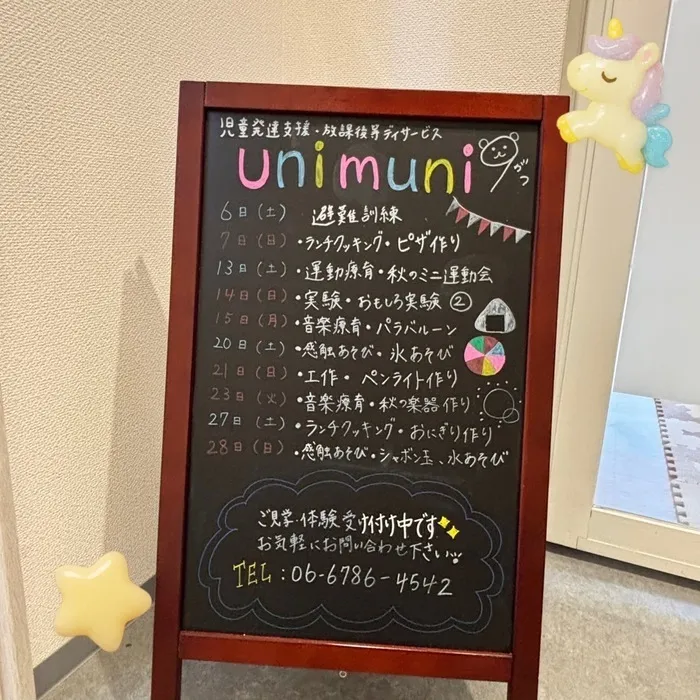 児童発達支援・放課後等デイサービス
unimuni
6日(土) 避難訓練
7日(日)・ランチクッキング・ピザ作り
13日(土)・運動療育・秋のミニ運動会
14日(日)・実験・おもしろ実験②
15日(月)・音楽療育・パラバルーン
20日(土)・感触あそび・氷あそび
21日(日)・工作・ペンライト作り
23日(火)・音楽療育・秋の楽器作り
27日(土)・ランチクッキング・おにぎり作り
28日(日)・感触あそび・シャボン玉、氷あそび
ご見学・体験受け付け中です
お気軽にお問い合わせ下さい
TEL:06-6786-4542